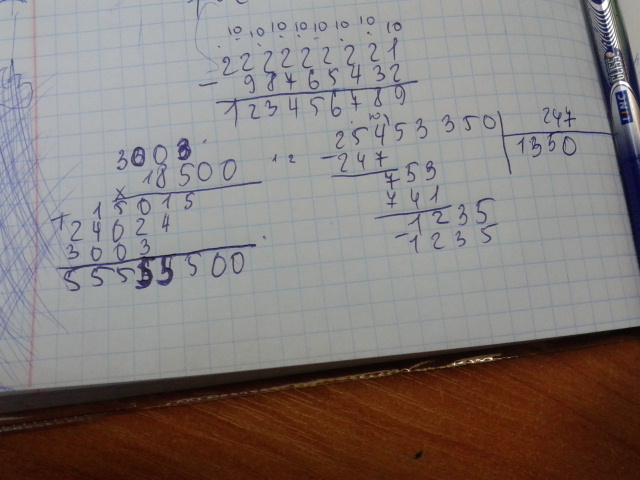 10 10 10 10 10 10 10
222222221
- 98765432
123456789
3003
× 18500
1 5015
+ 24024
3003
55555500
12
25453350 | 247
- 247 | 1350
753
741
- 1235
1235